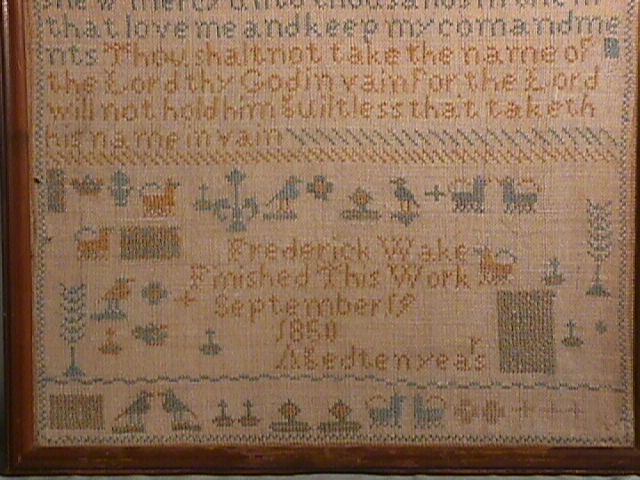 shew mercy unto thousands in
that love me and keep my comandme
nts Thou shalt not take the name of
the Lord thy God in vain for the Lord
will not hold him Guiltless that taketh
his name in vain
Frederick Wake
Finished This Work
September 19
1850
Aged ten years